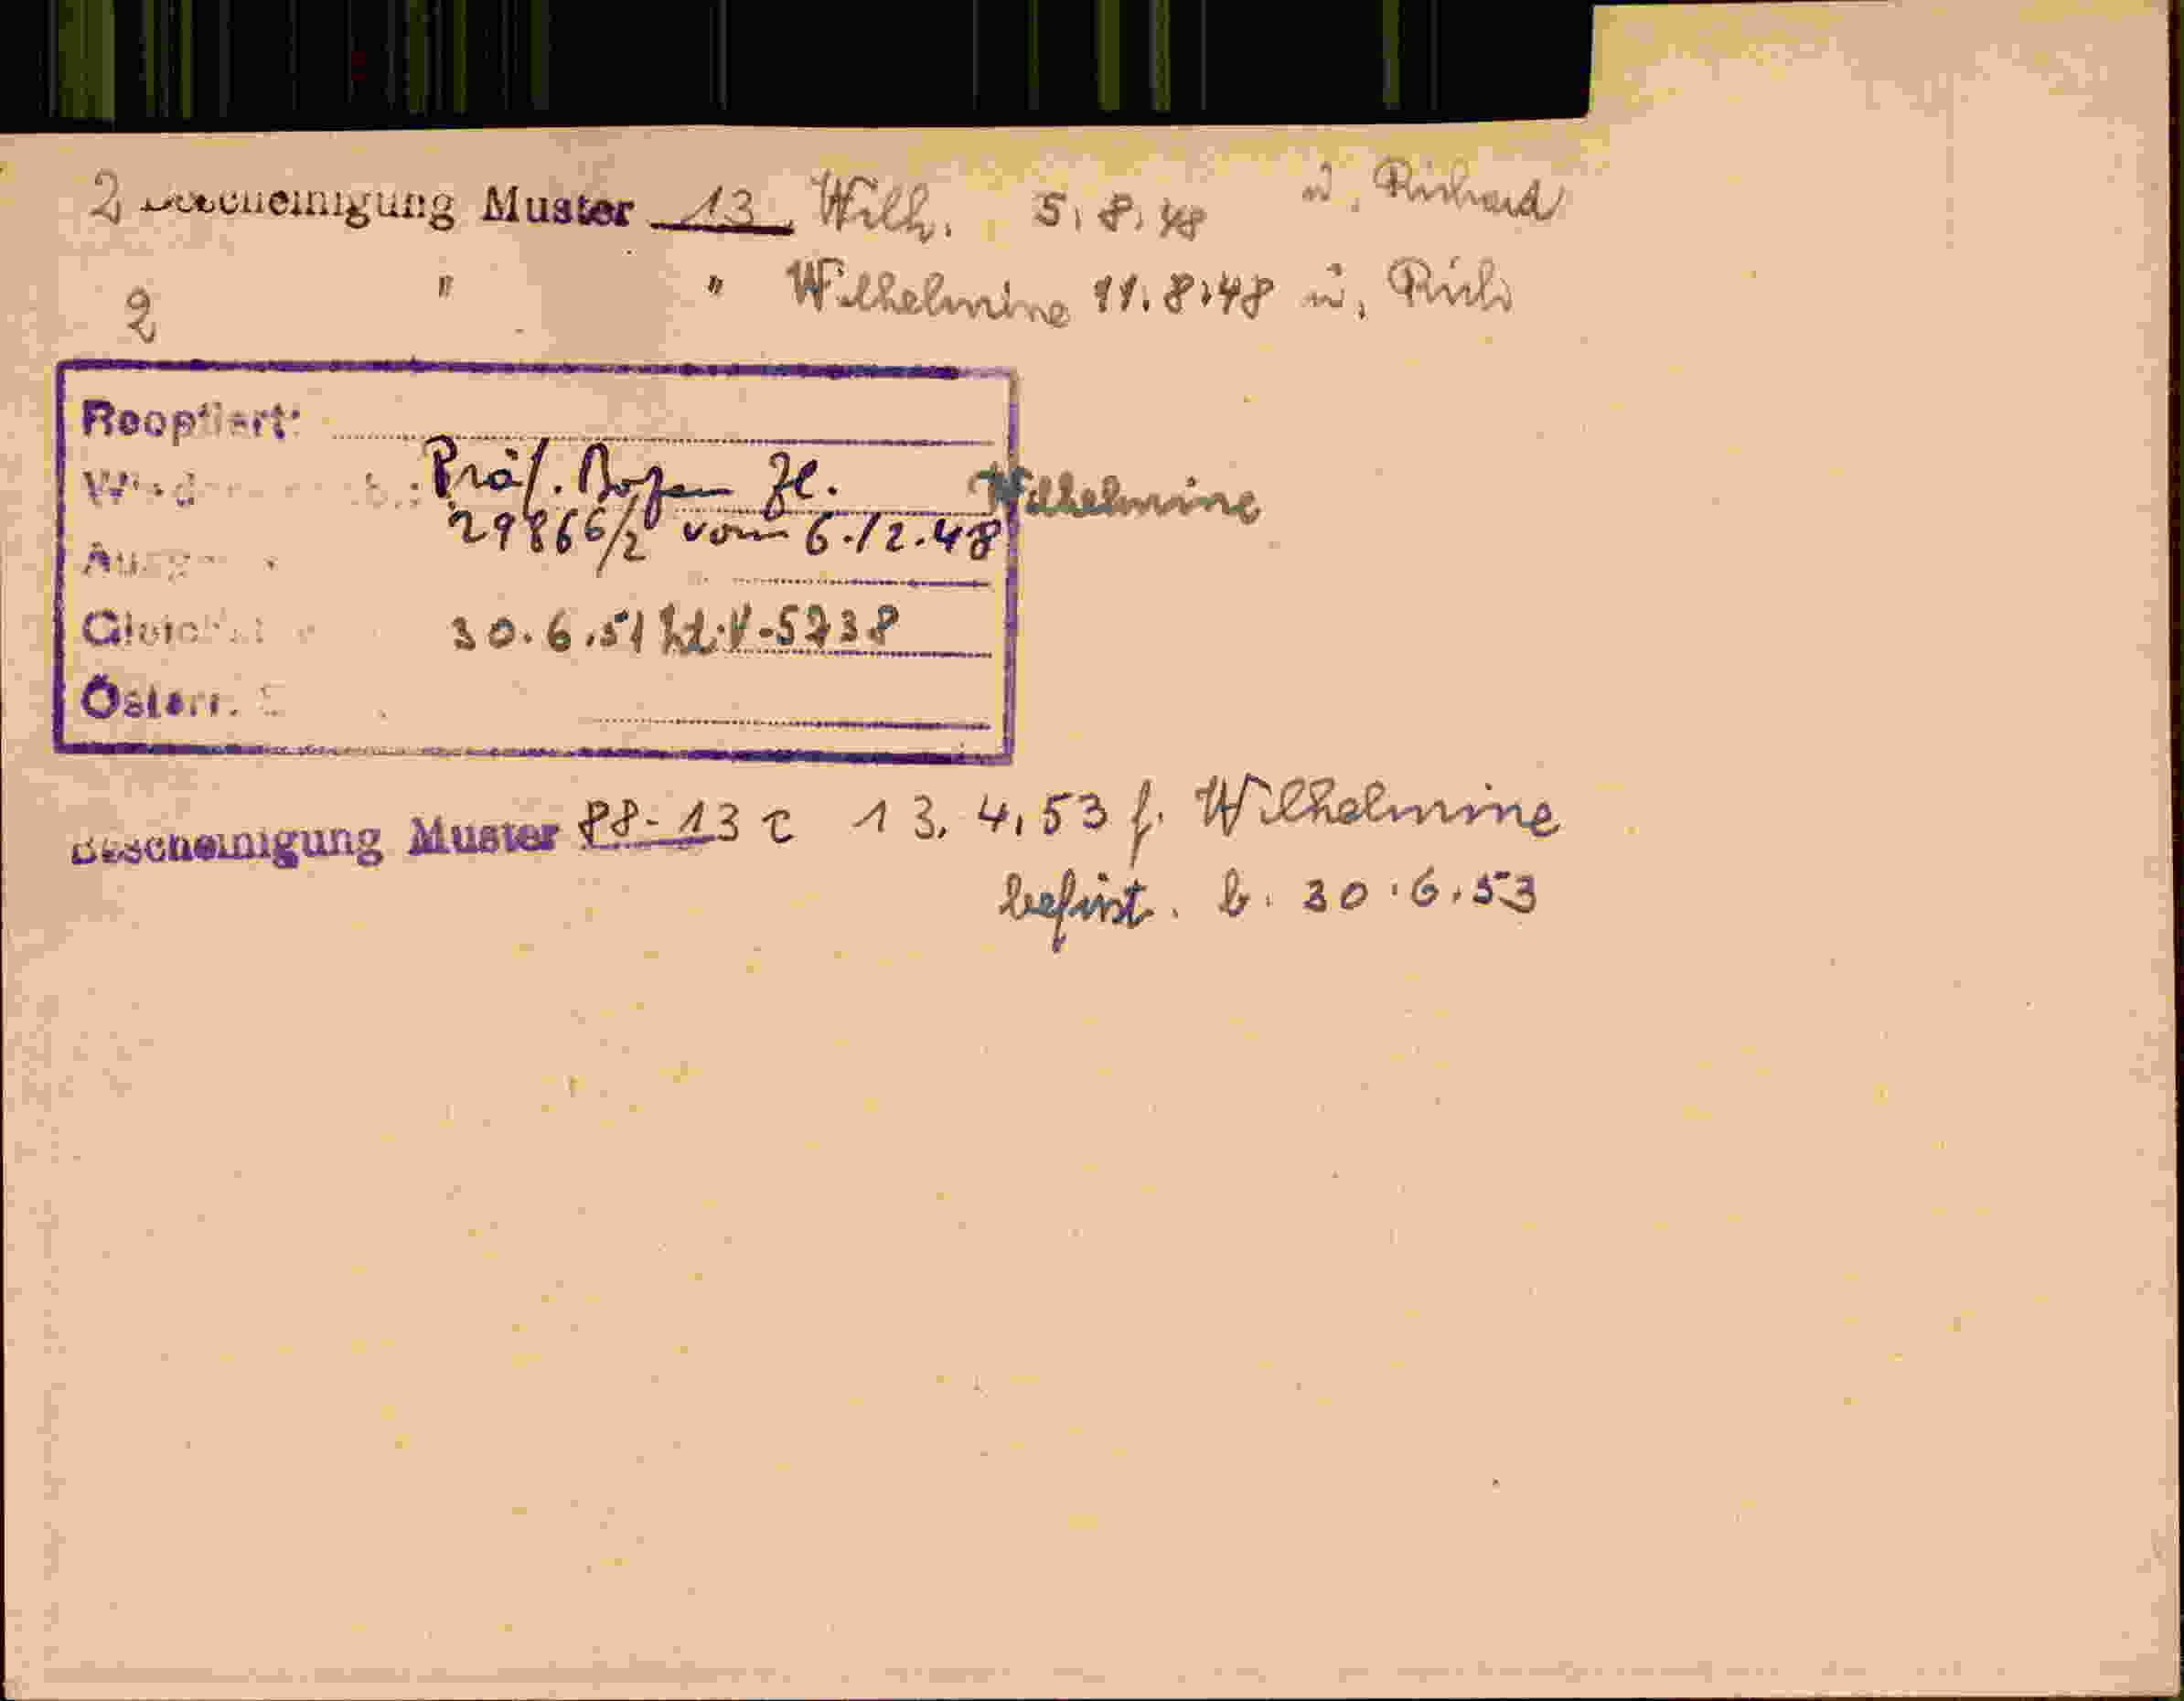 2 Bescheinigung Muster 13 Wilh. 5.8.48 u. Richard
2 " " Wilhelmine 11.8.48 u. Rich
Reoptiert:
Präf. Bozen Zl. Wilhelmine
29866/2 vom 6.12.48
30.6.51
Österr.
Bescheinigung Muster 88-13 c 13.4.53 f. Wilhelmine
befrist. b. 30.6.53